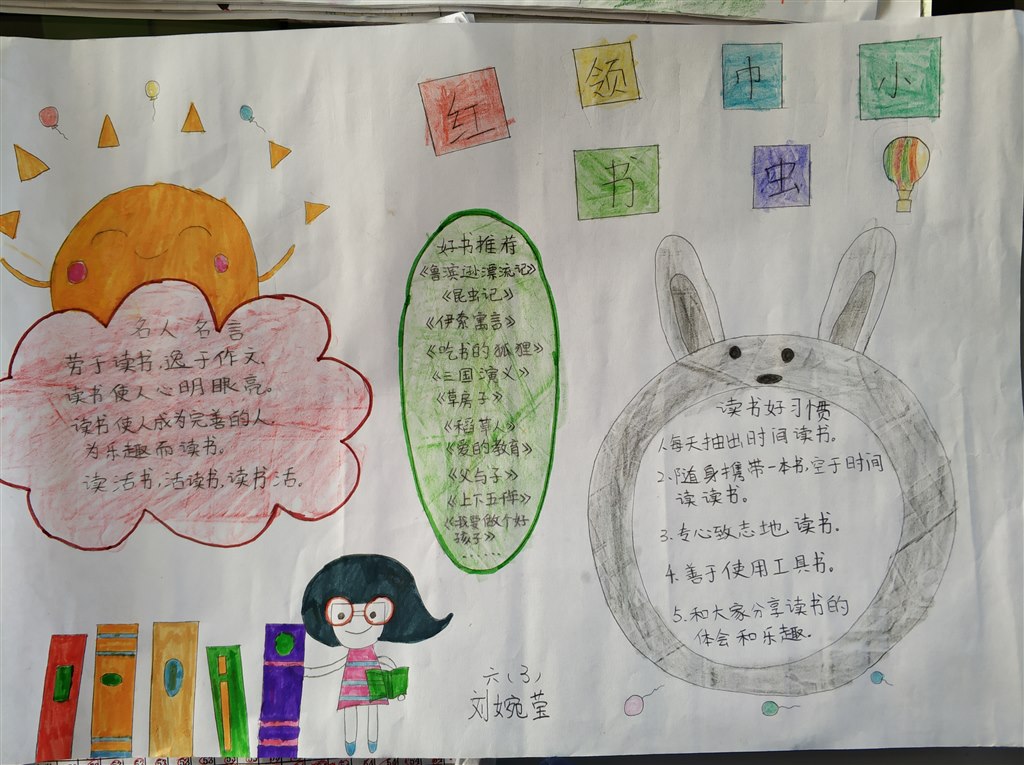 红领巾小
书虫
名人名言
劳于读书,逸于作文.
读书使人心明眼亮。
读书使人成为完善的人
为乐趣而读书。
读活书,活读书,读书活。
好书推荐
《鲁滨逊漂流记》
《昆虫记》
《伊索寓言》
《吃书的狐狸》
《三国演义》
《草房子》
《稻草人》
《爱的教育》
《父与子》
《上下五千年》
《我要做个好
孩子》
......
读书好习惯
1.每天抽出时间读书。
2.随身携带一本书,空于时间
读读书。
3.专心致志地读书.
4.善于使用工具书。
5.和大家分享读书的
体会和乐趣.
六(3)
刘婉莹